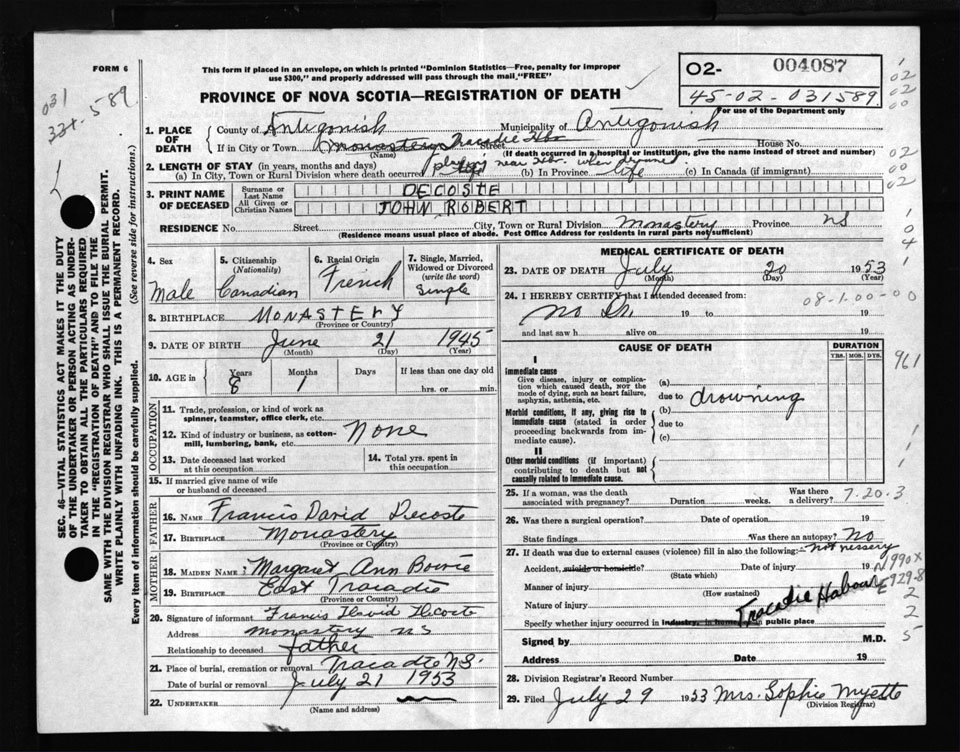 FORM 6
This form if placed in an envelope, on which is printed "Dominion Statistics—Free, penalty for improper
use $300," and properly addressed will pass through the mail "FREE"
PROVINCE OF NOVA SCOTIA—REGISTRATION OF DEATH
02- 004087
45-02-031589
For use of the Department only
031
331.589
SEC. 46—VITAL STATISTICS ACT MAKES IT THE DUTY
OF THE UNDERTAKER OR PERSON ACTING AS UNDER-
TAKER TO OBTAIN ALL THE PARTICULARS REQUIRED
IN THE "REGISTRATION OF DEATH" AND TO FILE THE
SAME WITH THE DIVISION REGISTRAR WHO SHALL ISSUE THE BURIAL PERMIT.
WRITE PLAINLY WITH UNFADING INK. THIS IS A PERMANENT RECORD.
Every item of information should be carefully supplied. (See reverse side for instructions.)
1. PLACE OF DEATH
County of Antigonish Municipality of Antigonish
If in City or Town Monastery Tracadie Hbr Street House No.
(Name) (If death occurred in a hospital or institution, give the name instead of street and number)
2. LENGTH OF STAY (in years, months and days) near Hbr. when drowned
(a) In City, Town or Rural Division where death occurred (b) In Province life (c) In Canada (if immigrant)
3. PRINT NAME OF DECEASED
Surname or Last Name DECOSTE
All Given or Christian Names JOHN ROBERT
RESIDENCE No. Street City, Town or Rural Division Monastery Province NS
(Residence means usual place of abode. Post Office Address for residents in rural parts not sufficient)
4. Sex Male
5. Citizenship (Nationality) Canadian
6. Racial Origin French
7. Single, Married, Widowed or Divorced (write the word) Single
8. BIRTHPLACE MONASTERY
(Province or Country)
9. DATE OF BIRTH June 21 1945
(Month) (Day) (Year)
10. AGE in Years Months Days If less than one day old
8 1 hrs. or min.
OCCUPATION
11. Trade, profession, or kind of work as
spinner, teamster, office clerk, etc.
12. Kind of industry or business, as cotton-
mill, lumbering, bank, etc. None
13. Date deceased last worked
at this occupation
14. Total yrs. spent in
this occupation
15. If married give name of wife
or husband of deceased
FATHER
16. NAME Francis David Decoste
17. BIRTHPLACE Monastery
(Province or Country)
MOTHER
18. MAIDEN NAME Margaret Ann Bowie
19. BIRTHPLACE East Tracadie
(Province or Country)
20. Signature of informant Francis David Decoste
Address Monastery NS
Relationship to deceased father
21. Place of burial, cremation or removal Tracadie NS.
Date of burial or removal July 21 1953
22. UNDERTAKER
(Name and address)
MEDICAL CERTIFICATE OF DEATH
23. DATE OF DEATH July 20 1953
(Month) (Day) (Year)
24. I HEREBY CERTIFY that I attended deceased from: 08-1.00-00
No Dr. 19 to 19
and last saw h alive on 19
CAUSE OF DEATH DURATION
YRS. MOS. DYS.
I
Immediate cause
Give disease, injury or complica-
tion which caused death, NOT the
mode of dying, such as heart failure,
asphyxia, asthenia, etc.
(a)
due to drowning
Morbid conditions, if any, giving rise to
immediate cause (stated in order
proceeding backwards from im-
mediate cause).
(b)
due to
(c)
II
Other morbid conditions (if important)
contributing to death but not
causally related to immediate cause.
25. If a woman, was the death
associated with pregnancy? Duration weeks. Was there a delivery? 7.20.3
26. Was there a surgical operation? Date of operation 19
State findings Was there an autopsy? No
27. If death was due to external causes (violence) fill in also the following: Not nessery
Accident, suicide or homicide? Date of injury 19
(State which)
Manner of injury
(How sustained)
Nature of injury
Specify whether injury occurred in industry, in home, or in public place Tracadie Habour
Signed by M.D.
Address Date 19
28. Division Registrar's Record Number
29. Filed July 29 1953 Mrs. Sophie Myette
(Division Registrar)
1
02
02
00
02
00
02
1
04
1
961
1
1
N990X
E929.8
2
2
5